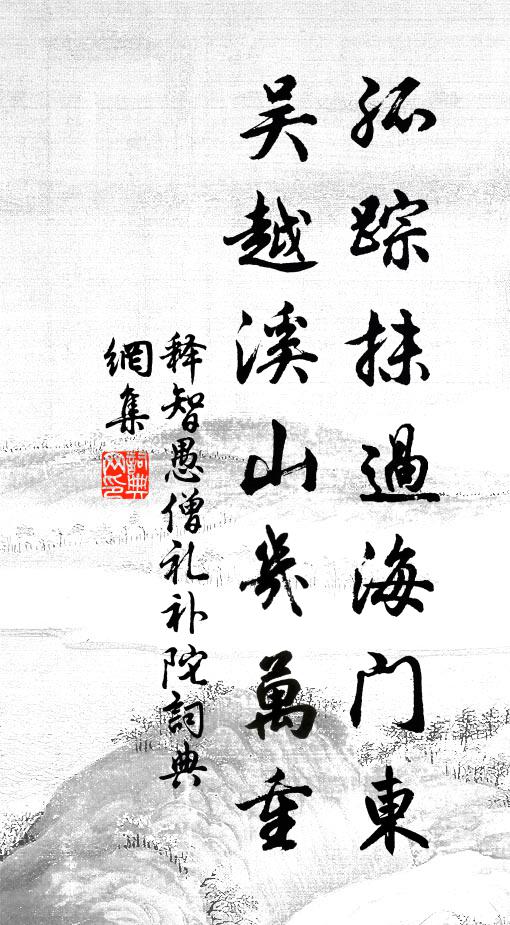 孤踪抹過海门東
吴越溪山幾萬重
释智愚僧礼补陀詞典
網集
詞典網印